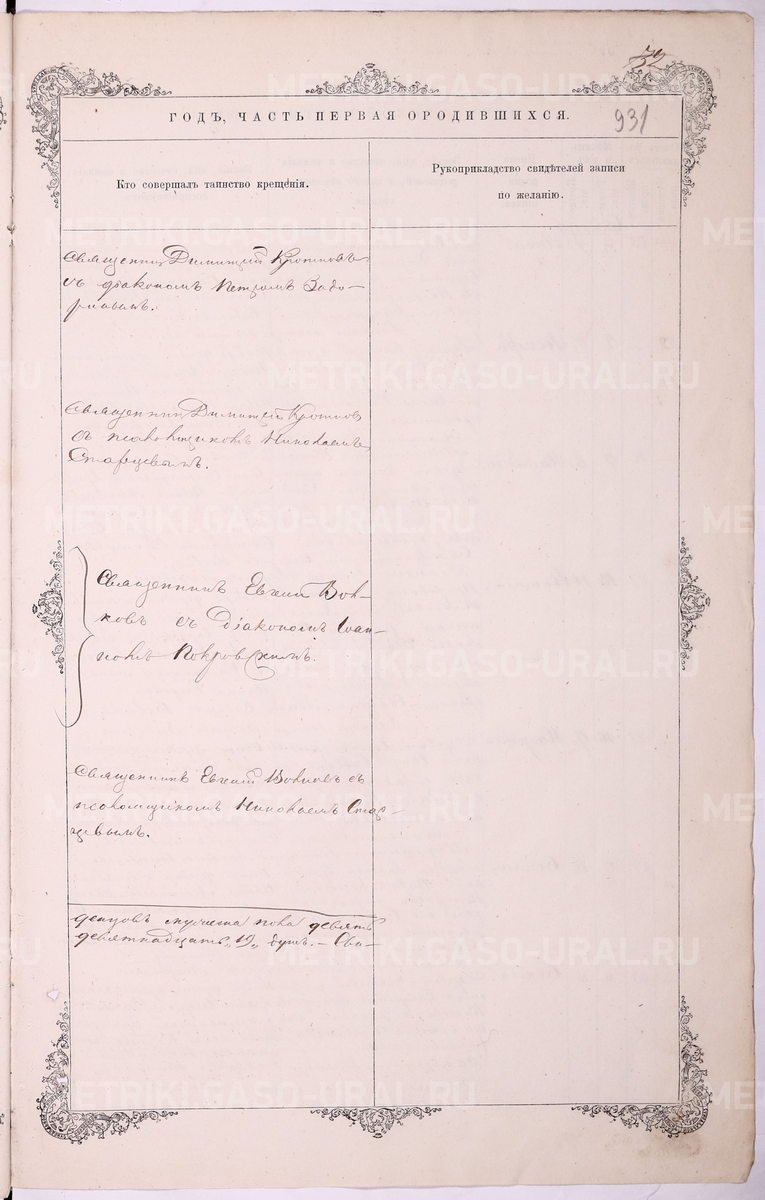 52
ГОДЪ, ЧАСТЬ ПЕРВАЯ О РОДИВШИХСЯ.
931
Кто совершалъ таинство крещенія.
Рукоприкладство свидѣтелей записи
по желанію.
Священникъ Димитрій Кротковъ
съ діакономъ Петромъ Задо-
ринымъ.
Священникъ Димитрій Кротковъ
съ псаломщикомъ Николаемъ
Старцевымъ.
Священникъ Евгеній Вол-
ковъ съ Діакономъ Іоан-
номъ Покровскимъ.
Священникъ Евгеній Волковъ съ
псаломщикомъ Николаемъ Стар-
цевымъ.
пола девять
девятнадцать „19„ душъ. — Свя-
METRIKI.GASO-URAL.RU